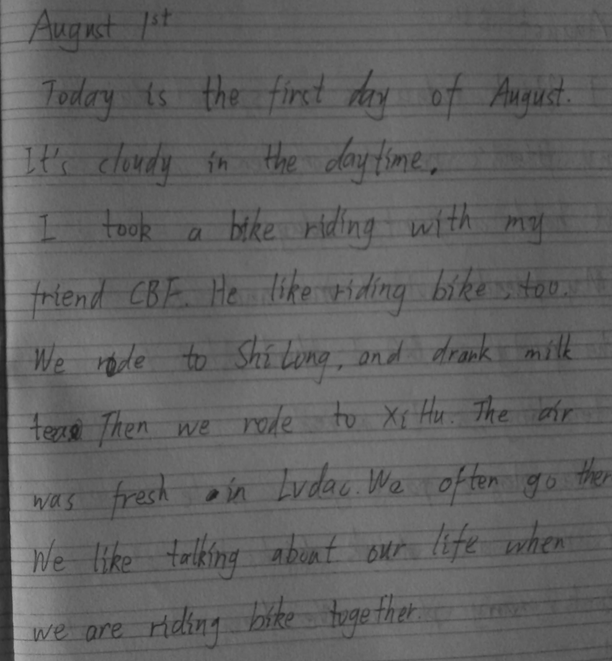 August 1st
Today is the first day of August.
It's cloudy in the daytime.
I took a bike riding with my
friend CBF. He like riding bike, too.
We rode to ShiLong, and drank milk
tea. Then we rode to XiHu. The air
was fresh in We often go ther
We like talking about our life when
we are riding bike together.